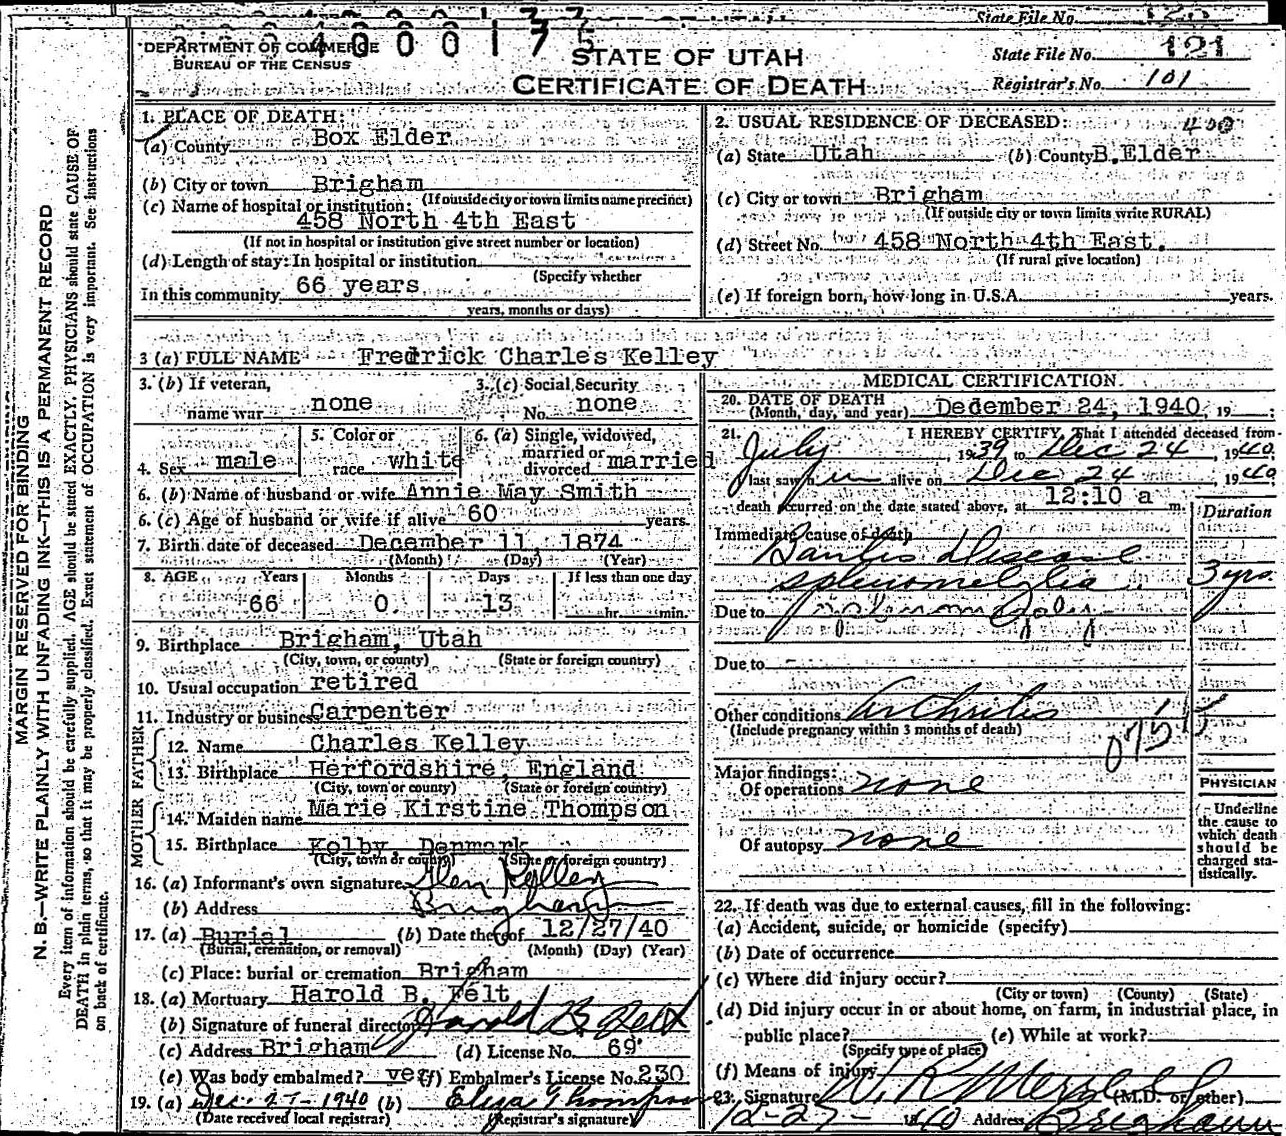 State File No.
4000175
DEPARTMENT OF COMMERCE
BUREAU OF THE CENSUS
STATE OF UTAH
CERTIFICATE OF DEATH
State File No. 121
Registrar's No. 101
MARGIN RESERVED FOR BINDING
N. B.—WRITE PLAINLY WITH UNFADING INK—THIS IS A PERMANENT RECORD
Every item of information should be carefully supplied. AGE should be stated EXACTLY. PHYSICIANS should state CAUSE OF
DEATH in plain terms, so that it may be properly classified. Exact statement of OCCUPATION is very important. See instructions
on back of certificate.
1. PLACE OF DEATH:
(a) County Box Elder
(b) City or town Brigham
(If outside city or town limits name precinct)
(c) Name of hospital or institution:
458 North 4th East
(If not in hospital or institution give street number or location)
(d) Length of stay: In hospital or institution
(Specify whether
In this community 66 years
years, months or days)
2. USUAL RESIDENCE OF DECEASED: 400
(a) State Utah (b) County B.Elder
(c) City or town Brigham
(If outside city or town limits write RURAL)
(d) Street No. 458 North 4th East.
(If rural give location)
(e) If foreign born, how long in U.S.A. years.
3 (a) FULL NAME Fredrick Charles Kelley
3. (b) If veteran, name war none
3. (c) Social Security No. none
4. Sex male
5. Color or race white
6. (a) Single, widowed, married or divorced married
6. (b) Name of husband or wife Annie May Smith
6. (c) Age of husband or wife if alive 60 years.
7. Birth date of deceased December 11, 1874
(Month) (Day) (Year)
8. AGE Years Months Days If less than one day
66 0 13 hr. min.
9. Birthplace Brigham, Utah
(City, town, or county) (State or foreign country)
10. Usual occupation retired
11. Industry or business Carpenter
FATHER
12. Name Charles Kelley
13. Birthplace Herfordshire, England
(City, town or county) (State or foreign country)
MOTHER
14. Maiden name Marie Kirstine Thompson
15. Birthplace Kolby, Denmark
(City, town or county) (State or foreign country)
16. (a) Informant's own signature Glen Kelley
(b) Address Brigham
17. (a) Burial (b) Date thereof 12/27/40
(Burial, cremation, or removal) (Month) (Day) (Year)
(c) Place: burial or cremation Brigham
18. (a) Mortuary Harold B. Felt
(b) Signature of funeral director Harold B. Felt
(c) Address Brigham (d) License No. 69
(e) Was body embalmed? yes (f) Embalmer's License No. 230
19. (a) Dec. 27-1940 (b) Eliza Thompson
(Date received local registrar) (Registrar's signature)
MEDICAL CERTIFICATION
20. DATE OF DEATH
(Month, day, and year) December 24, 1940, 19 ;
21. I HEREBY CERTIFY, That I attended deceased from
July, 1939 to Dec 24, 1940,
I last saw him alive on Dec 24, 1940
death occurred on the date stated above, at 12:10 a m.
Duration
Immediate cause of death
Bantis Disease
3 yrs.
Due to
Due to
Other conditions Arthritis
(Include pregnancy within 3 months of death)
075
Major findings:
Of operations none
Of autopsy none
PHYSICIAN
Underline
the cause to
which death
should be
charged sta-
tistically.
22. If death was due to external causes, fill in the following:
(a) Accident, suicide, or homicide (specify)
(b) Date of occurrence
(c) Where did injury occur?
(City or town) (County) (State)
(d) Did injury occur in or about home, on farm, in industrial place, in
public place? (e) While at work?
(Specify type of place)
(f) Means of injury
23. Signature W. R. Merrell (M.D. or other)
12-27- 1940 Address Brigham